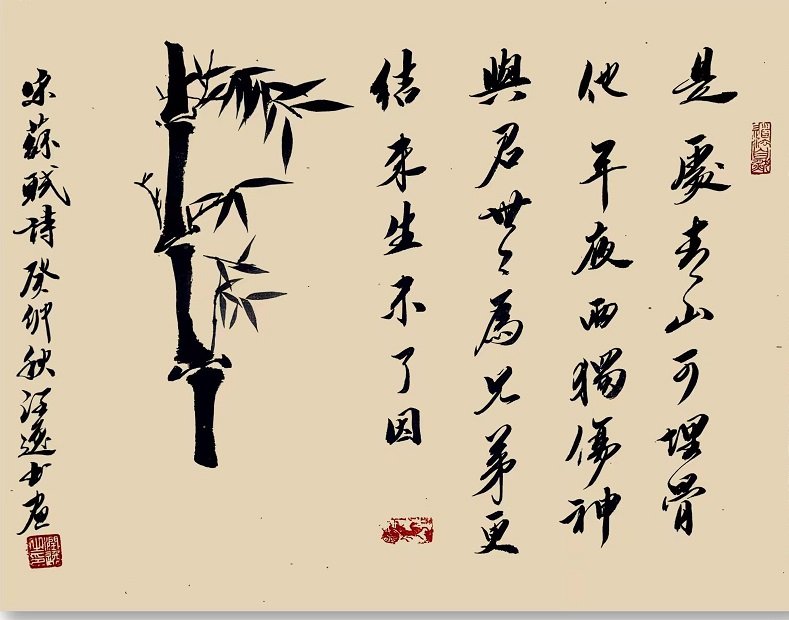 是處青山可埋骨
他年夜雨獨傷神
與君世々為兄弟更
結來生未了因
宋蘇軾詩癸卯秋汪逸书画